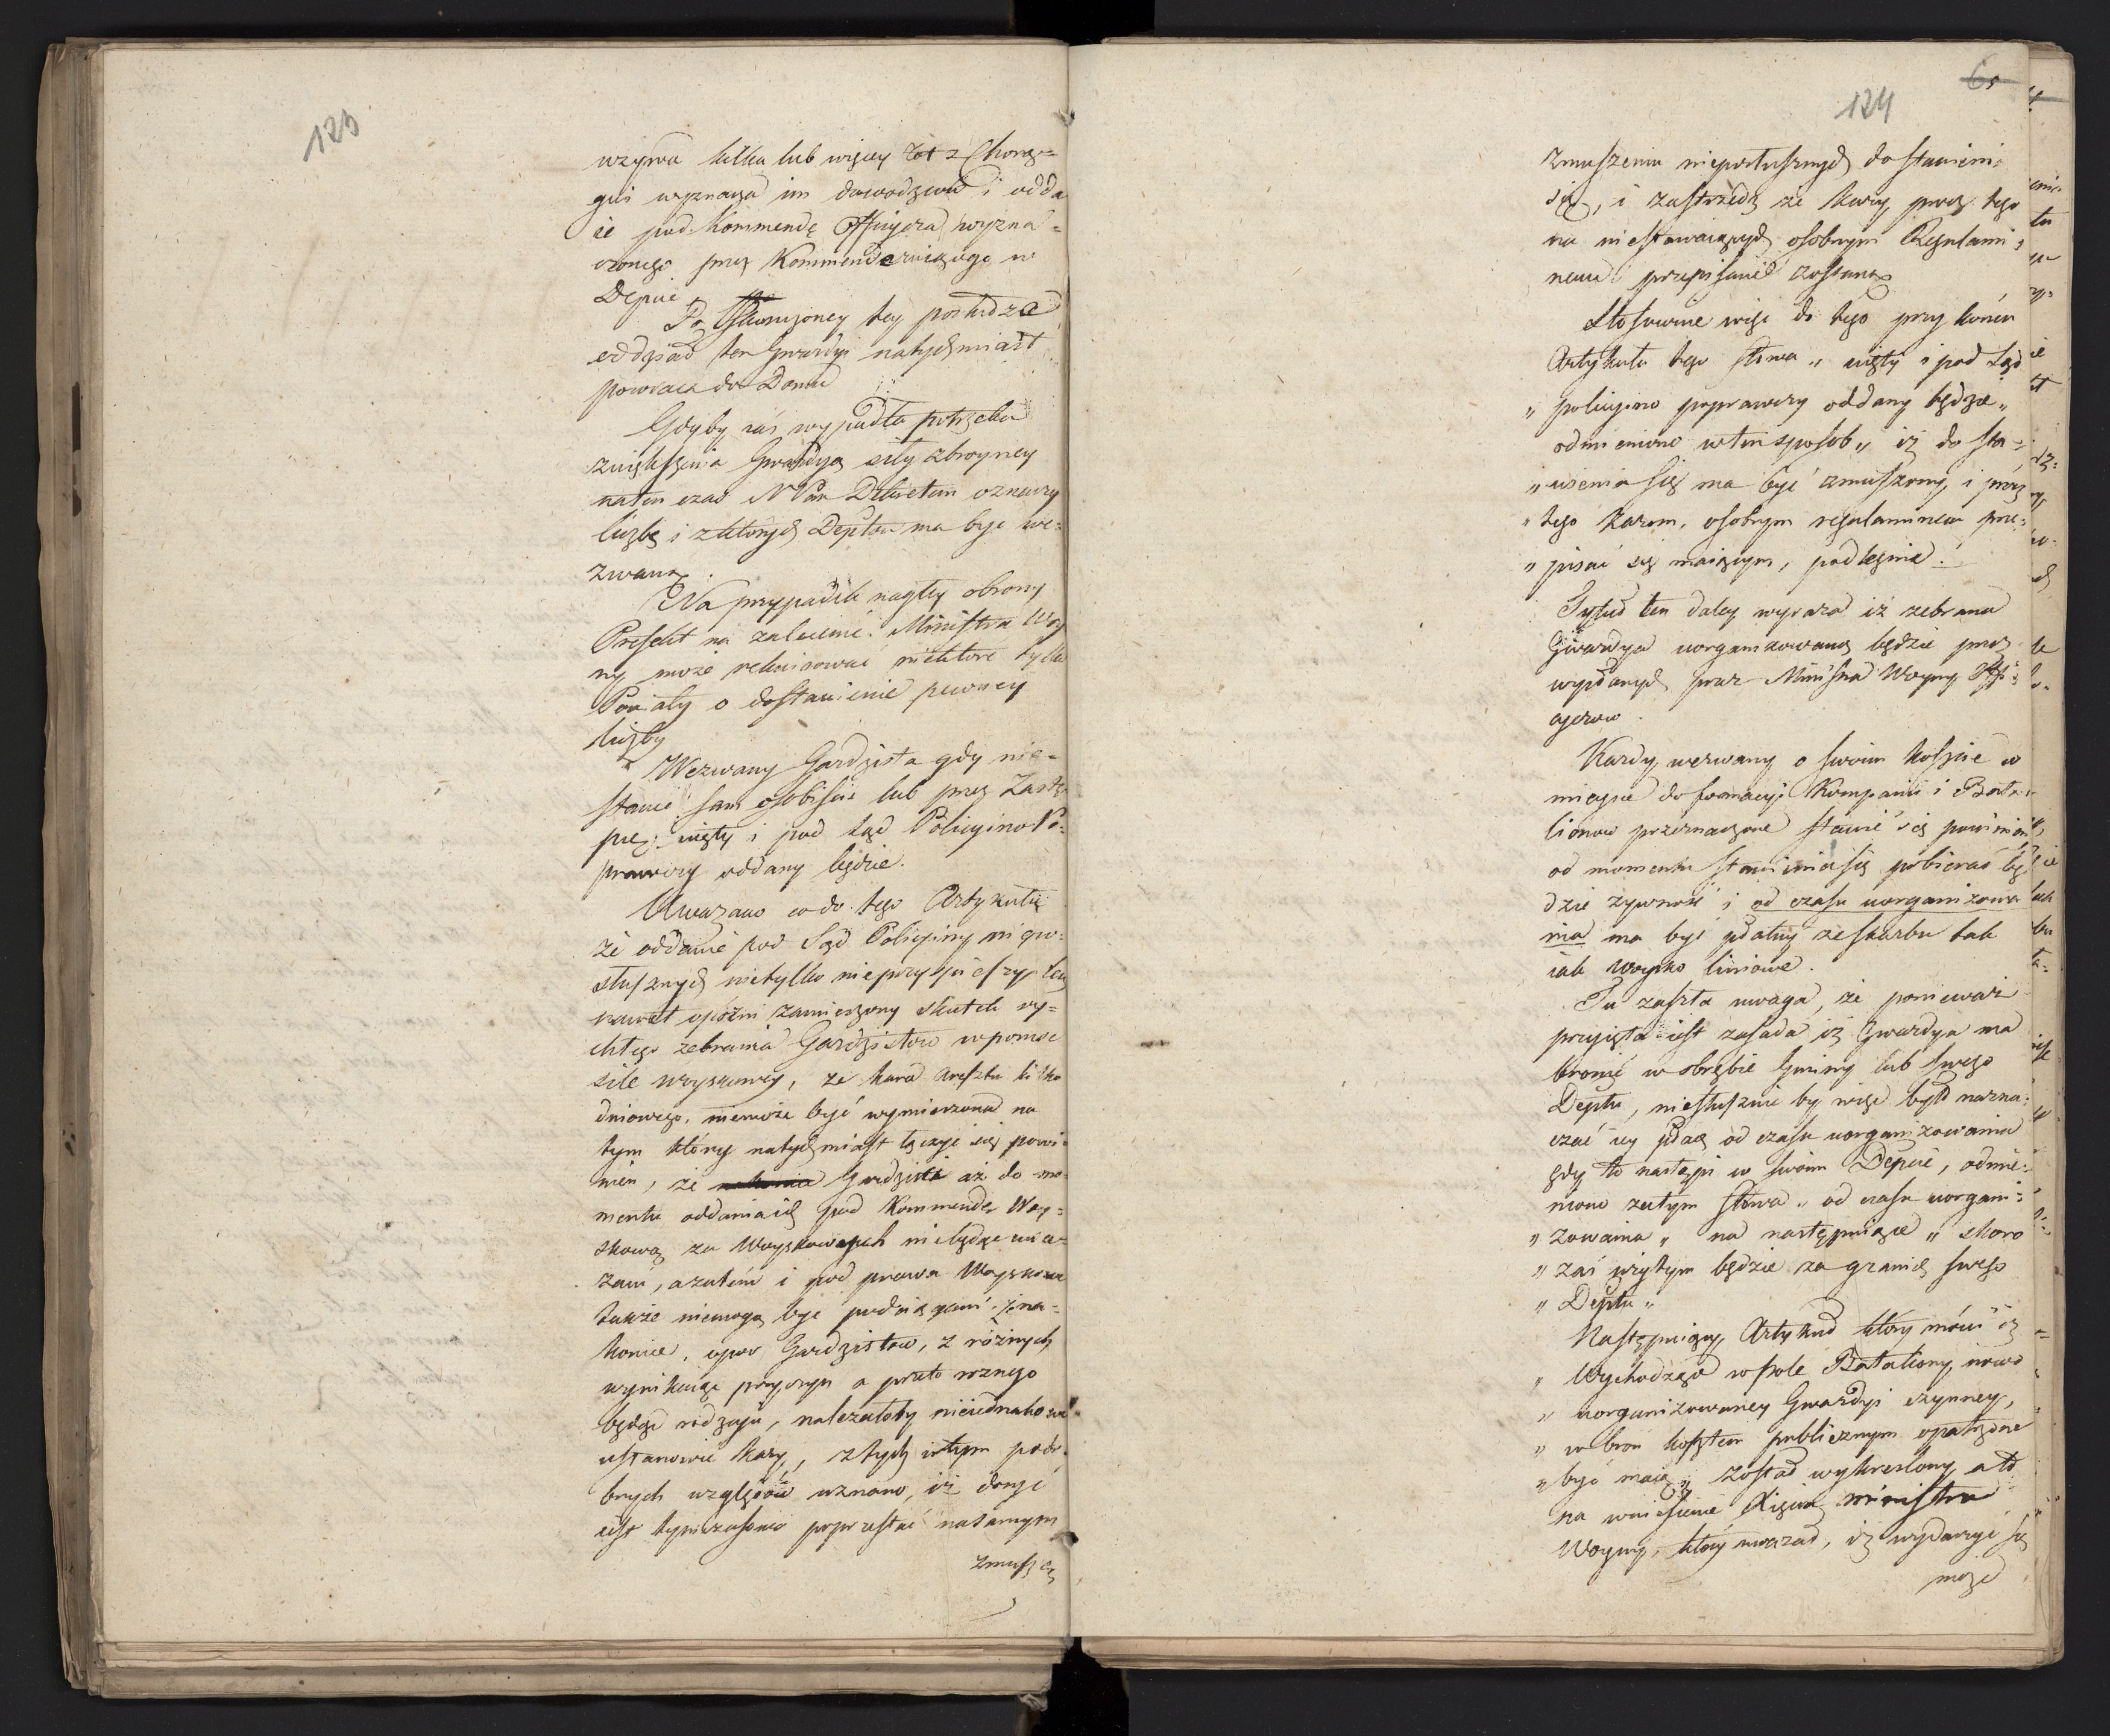 123
wzywa kilka lub więcey Rot z Chorą=
gwi wyznacza im dowodzców i odda
ie pod Kommendę Officyera wyzna=
czonego przez Kommenderuiącego w
Depcie
Po Skończoney tey posłudze
oddział ten Gwardyi natychmiast
powraca do Domu
Gdyby zaś wypadła potrzeba
zwiększenia Gwardyą siły zbroyney
naten czas N Pan Dekretem oznaczy
liczbę i z których Deptow ma byc we=
zwaną.
Na przypadek nagłey obrony
Prefekt na zalecenie Ministra Woy
ny może rekwirować niektóre tylko
Powiaty o dostawienie pewney
liczby
Wezwany Gardzista gdy nie=
stanie sam osobiście lub przez Zastę
pcę: wzięty i pod Sąd Policyino Po=
prawczy oddany będzie.
Uważano co do tego Artykułu
że oddanie pod Sąd Policyiny niepo=
słusznych nietylko nieprzyspieszy lecz
nawet opóźni zamierzony skutek ry=
chłego zebrania Gardzistow w pomoc
sile woyskowey, że kara aresztu kilko
dniowego, niemoże być wymierzona na
tym który natychmiast łączyć się powi=
nien, że Gardziści aż do mo=
mentu oddania ich pod Kommendę Woy=
skową za Woyskowych nie będąc uwa=
żani, a zatém i pod prawa Woyskowe
także niemogą byc podciągani, że na=
koniec, opor Gardzistow, z różnych
wynikaiąc przyczyn a przeto rożnego
będąc rodzaju, należałoby nieiednakowe
ustanowić kary, z tych i tym podo
bnych względów uznano, iż dosyć
iest tymczasowo poprzestać na samym
zmusze
65
124
zmuszeniu nieposłusznych do stawieni=
się, i zastrzedz że kary, prócz tego
na niestawaiących osobnym Regulami=
nem przepisane zostaną
Stosownie więc do tego przy końcu
Artykułu tego słowa „ wzięty i pod Sąd
„ policyino poprawczy oddany będzie „
odmieniono w ten sposob „ iż do sta=
„ wienia się ma być zmuszony, i prócz
„ tego karom, osobnym regulaminem prze=
„ pisać się maiącym, podlegnie.
Tytuł ten daley wyraża iż zebrana
Gwardya uorganizowaną będzie przez
wysłanych przez Ministra Woyny Offi=
cyerow.
Każdy wezwany o swoim koszcie w
mieysce do formacyi Kompanii i Bata=
lionow przeznaczone stawić się powinien
od momentu stawienia się pobierać bę=
dzie żywność i od czasu uorganizowa
nia ma być płatny ze skarbu tak
iak woysko liniowe.
Tu zaszła uwaga, że ponieważ
przyięta iest zasada iż Gwardya ma
bronić w obrębie Gminy lub swego
Deptu, niesłusznie by więc było nazna=
czać iey płacę od czasu uorganizowania
gdy to nastąpi w swoim Depcie, odmie=
niono zatym słowa „ od czasu uorgani=
„ zowania „ na następuiące „ skoro
„ zaś użytym będzie za granicę swego
„ Deptu „
Następuiący Artykuł który mówi iż
„ Wychodzące w pole Bataliony, nowo
„ uorganizowaney Gwardyi czynney,
„ w broń kosztem publicznym opatrzone
„ być maią „ został wykreślony, a to
na wniesienie Xięcia ministra
Woyny, który uważał, iż wydarzyć się
może